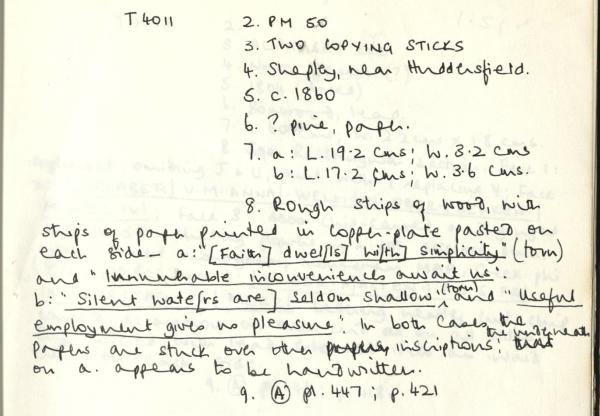 T 4011 2. PM 50
3. TWO COPYING STICKS
4. Shepley, near Huddersfield.
5. c. 1860
6. ? pine, paper.
7. a: L. 19.2 cms; W. 3.2 cms
b: L. 17.2 cms; W. 3.6 cms.
8. Rough strips of wood, with
strips of paper printed in copper-plate pasted on
each side - a: "[Faith] dwel[ls] wi[th] simplicity" (torn)
and "Innumerable inconveniences await us".
b: "Silent wate[rs are] seldom shallow" (torn) and "Useful
employment gives no pleasure". In both cases the
papers are stuck over other inscriptions; the underneath
on a. appears to be handwritten.
9. (A) pl. 447; p. 421